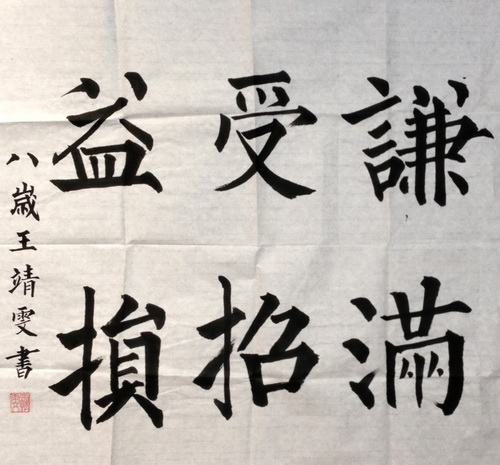 謙受益
滿招損
八歲王靖雯書